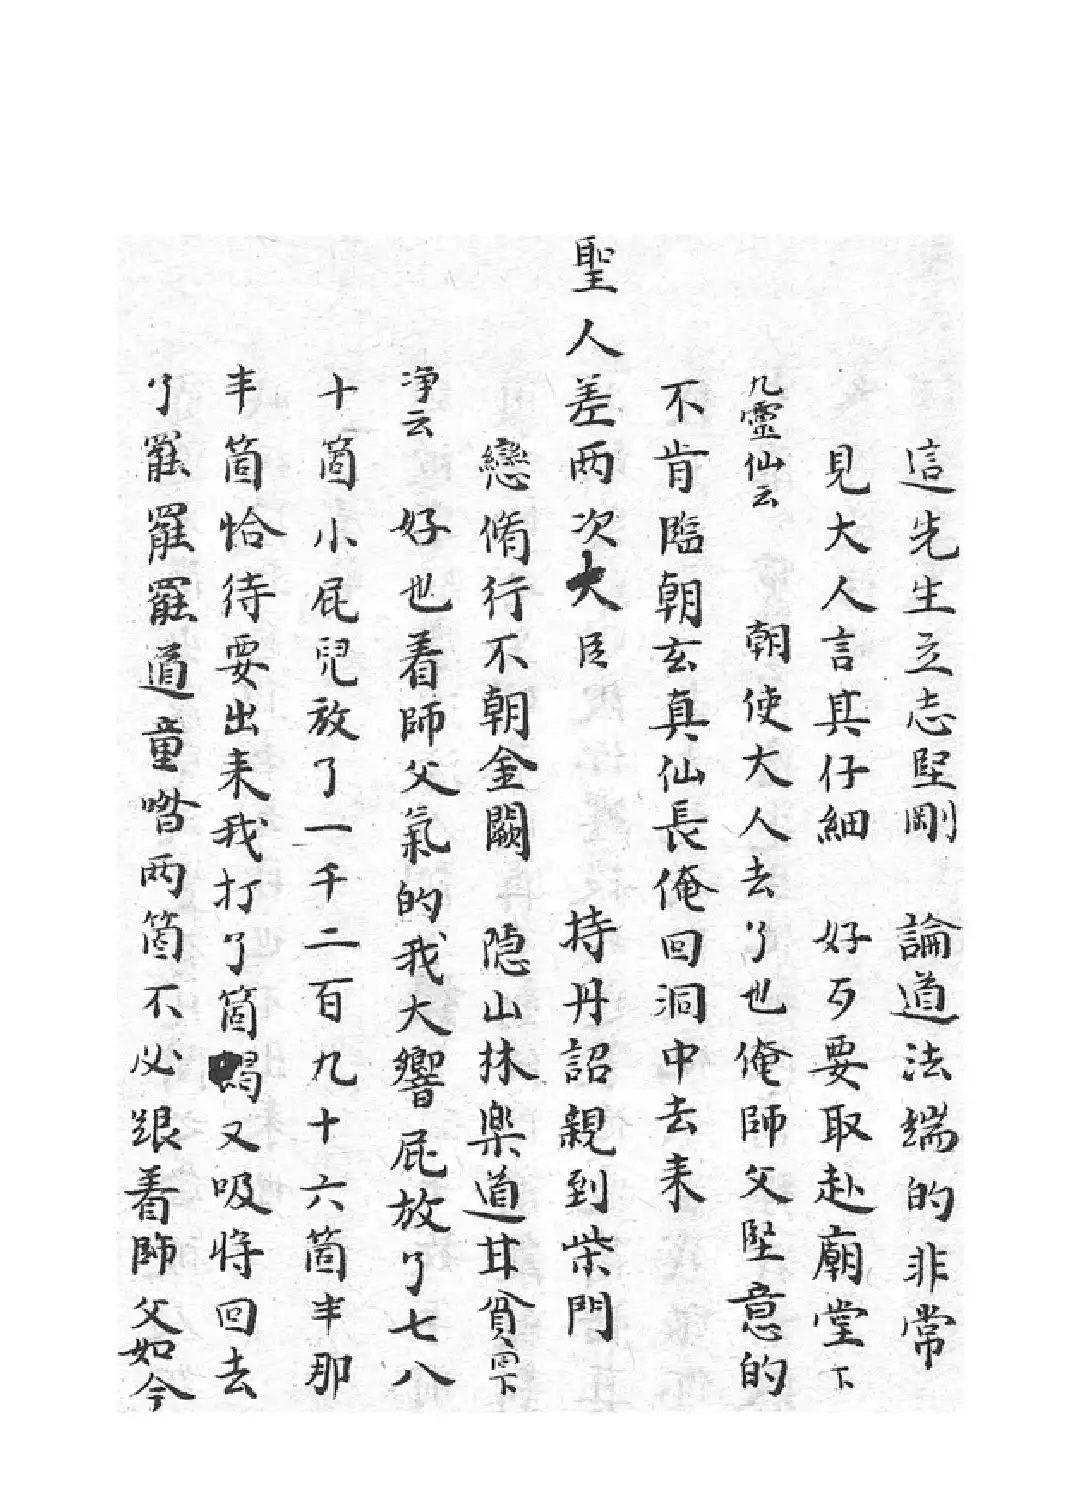 這先生立志堅剛 論道法端的非常
見大人言其仔細 好歹要取赴廟堂下
九靈仙云 朝使大人去了也俺師父堅意的
不肯臨朝玄真仙長俺回洞中去来
聖人差两次大臣 持丹詔親到柴門
戀脩行不朝金闕 隐山林樂道甘貧同下
净云 好也看師父氣的我大響屁放了七八
十箇小屁兒放了一千二百九十六箇半那
半箇恰待要出来我打了箇又吸将回去
了罷罷罷道童喒两箇不必跟着師父如今